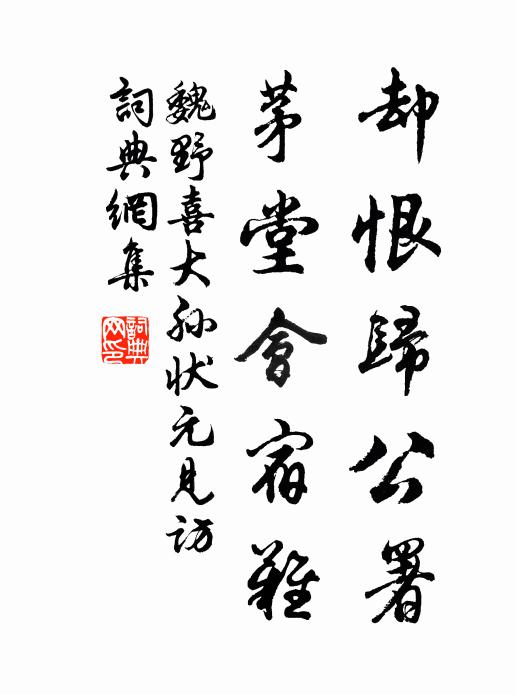 却恨歸公署
茅堂會宿難
魏野喜大孫状元見訪
詞典網集
詞典網印